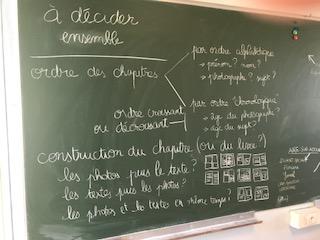 à décider
ensemble
ordre des chapitres
par ordre alphabétique
→ prénom ? nom ?
→ photographe ? sujet ?
ordre croissant
ou décroissant
par ordre "chronologique"
→ âge du photographe ?
→ âge du sujet ?
construction du chapitre (ou du livre ?)
les photos puis le texte ?
les textes puis les photos ?
les photos et les textes en même temps ?